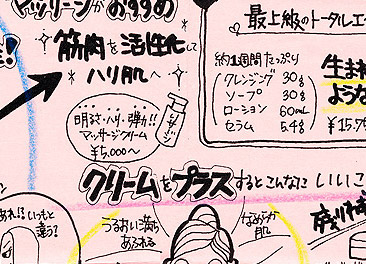 マッサージがおすすめ
筋肉を活性化して
ハリ肌へ
明るさ・ハリ・弾力!!
マッサージクリーム
¥5,000〜
最上級のトータルエ
約1週間たっぷり
クレンジング 30g
ソープ 30g
ローション 60mL
セラム 5.4g
生まれ
ような
¥15.75
クリームをプラスするとこんなにいいこ
あれ!!いつもと
違う!
うるおい満ち
あふれる
なめらか
肌